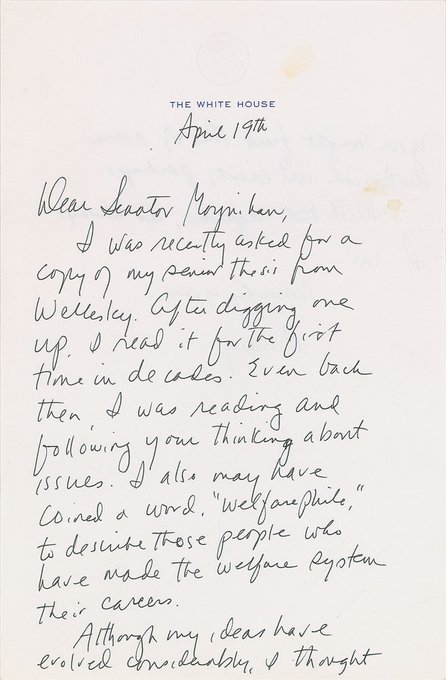 THE WHITE HOUSE
April 19th
Dear Senator Moynihan,
I was recently asked for a
copy of my senior thesis from
Wellesley. After digging one
up, I read it for the first
time in decades. Even back
then, I was reading and
following your thinking about
issues. I also may have
coined a word, "welfarephile,"
to describe those people who
have made the welfare system
their careers.
Although my ideas have
evolved considerably, I thought